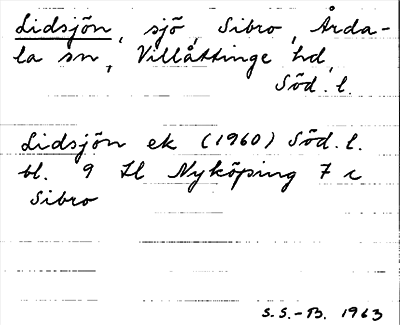 Lidsjön, sjö, Sibro, Årda-
la sn, Villåttinge hd,
Söd. l.
Lidsjön ek (1960) Söd. l.
bl. 9 Il Nyköping 7 c
Sibro
S.S.-B. 1963